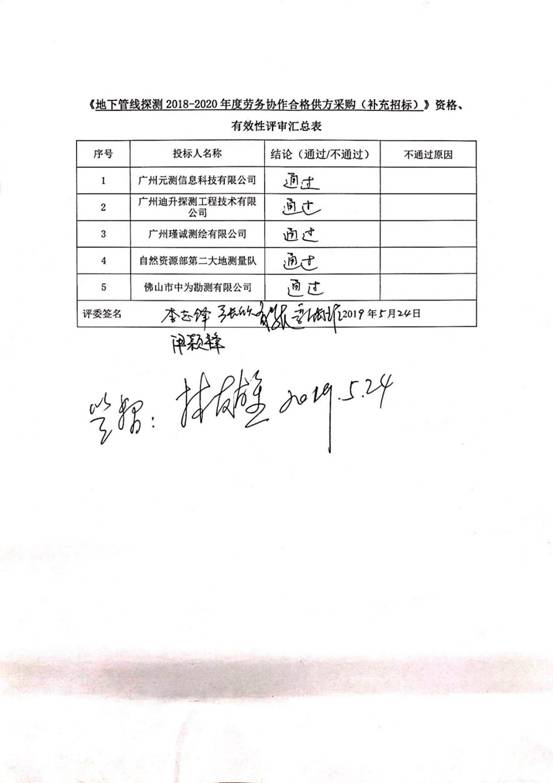 《地下管线探测 2018-2020 年度劳务协作合格供方采购（补充招标）》资格、
有效性评审汇总表
序号 投标人名称 结论（通过/不通过） 不通过原因
1 广州元测信息科技有限公司 通过
2 广州迪升探测工程技术有限
公司 通过
3 广州瑾诚测绘有限公司 通过
4 自然资源部第二大地测量队 通过
5 佛山市中为勘测有限公司 通过
评委签名 李志锋 2019年5月24日
2019.5.24